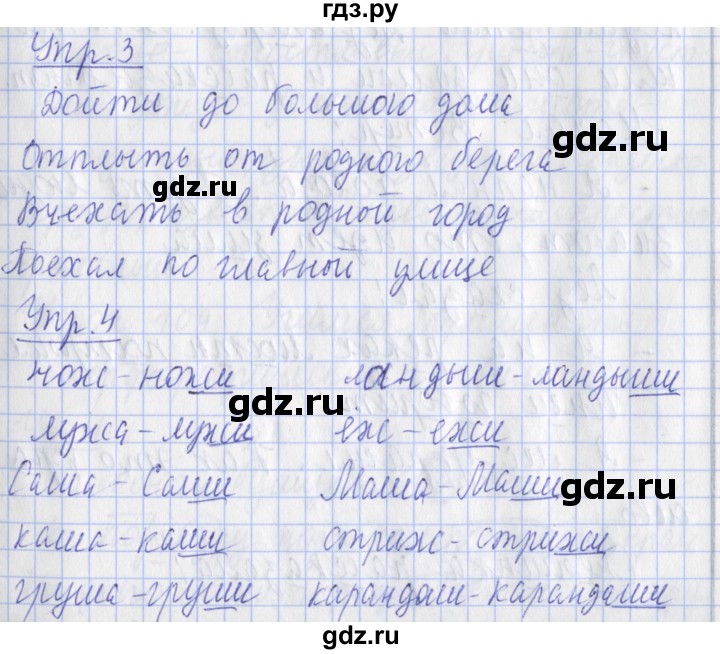 гдз.ру
Упр.3
Дойти до большого дома
gdz.ru
Отплыть от родного берега
gdz.ru
Вчехать в родной город
Поехал по главной улице
gdz.ru
Упр.4
нож - ножи ландыш - ландыши
gdz.ru
лужа - лужи ёж - ежи
Саша - Саши Маша - Маши
gdz.ru
каша - каши стриж - стрижи
груша - груши карандаш - карандаши
gdz.ru